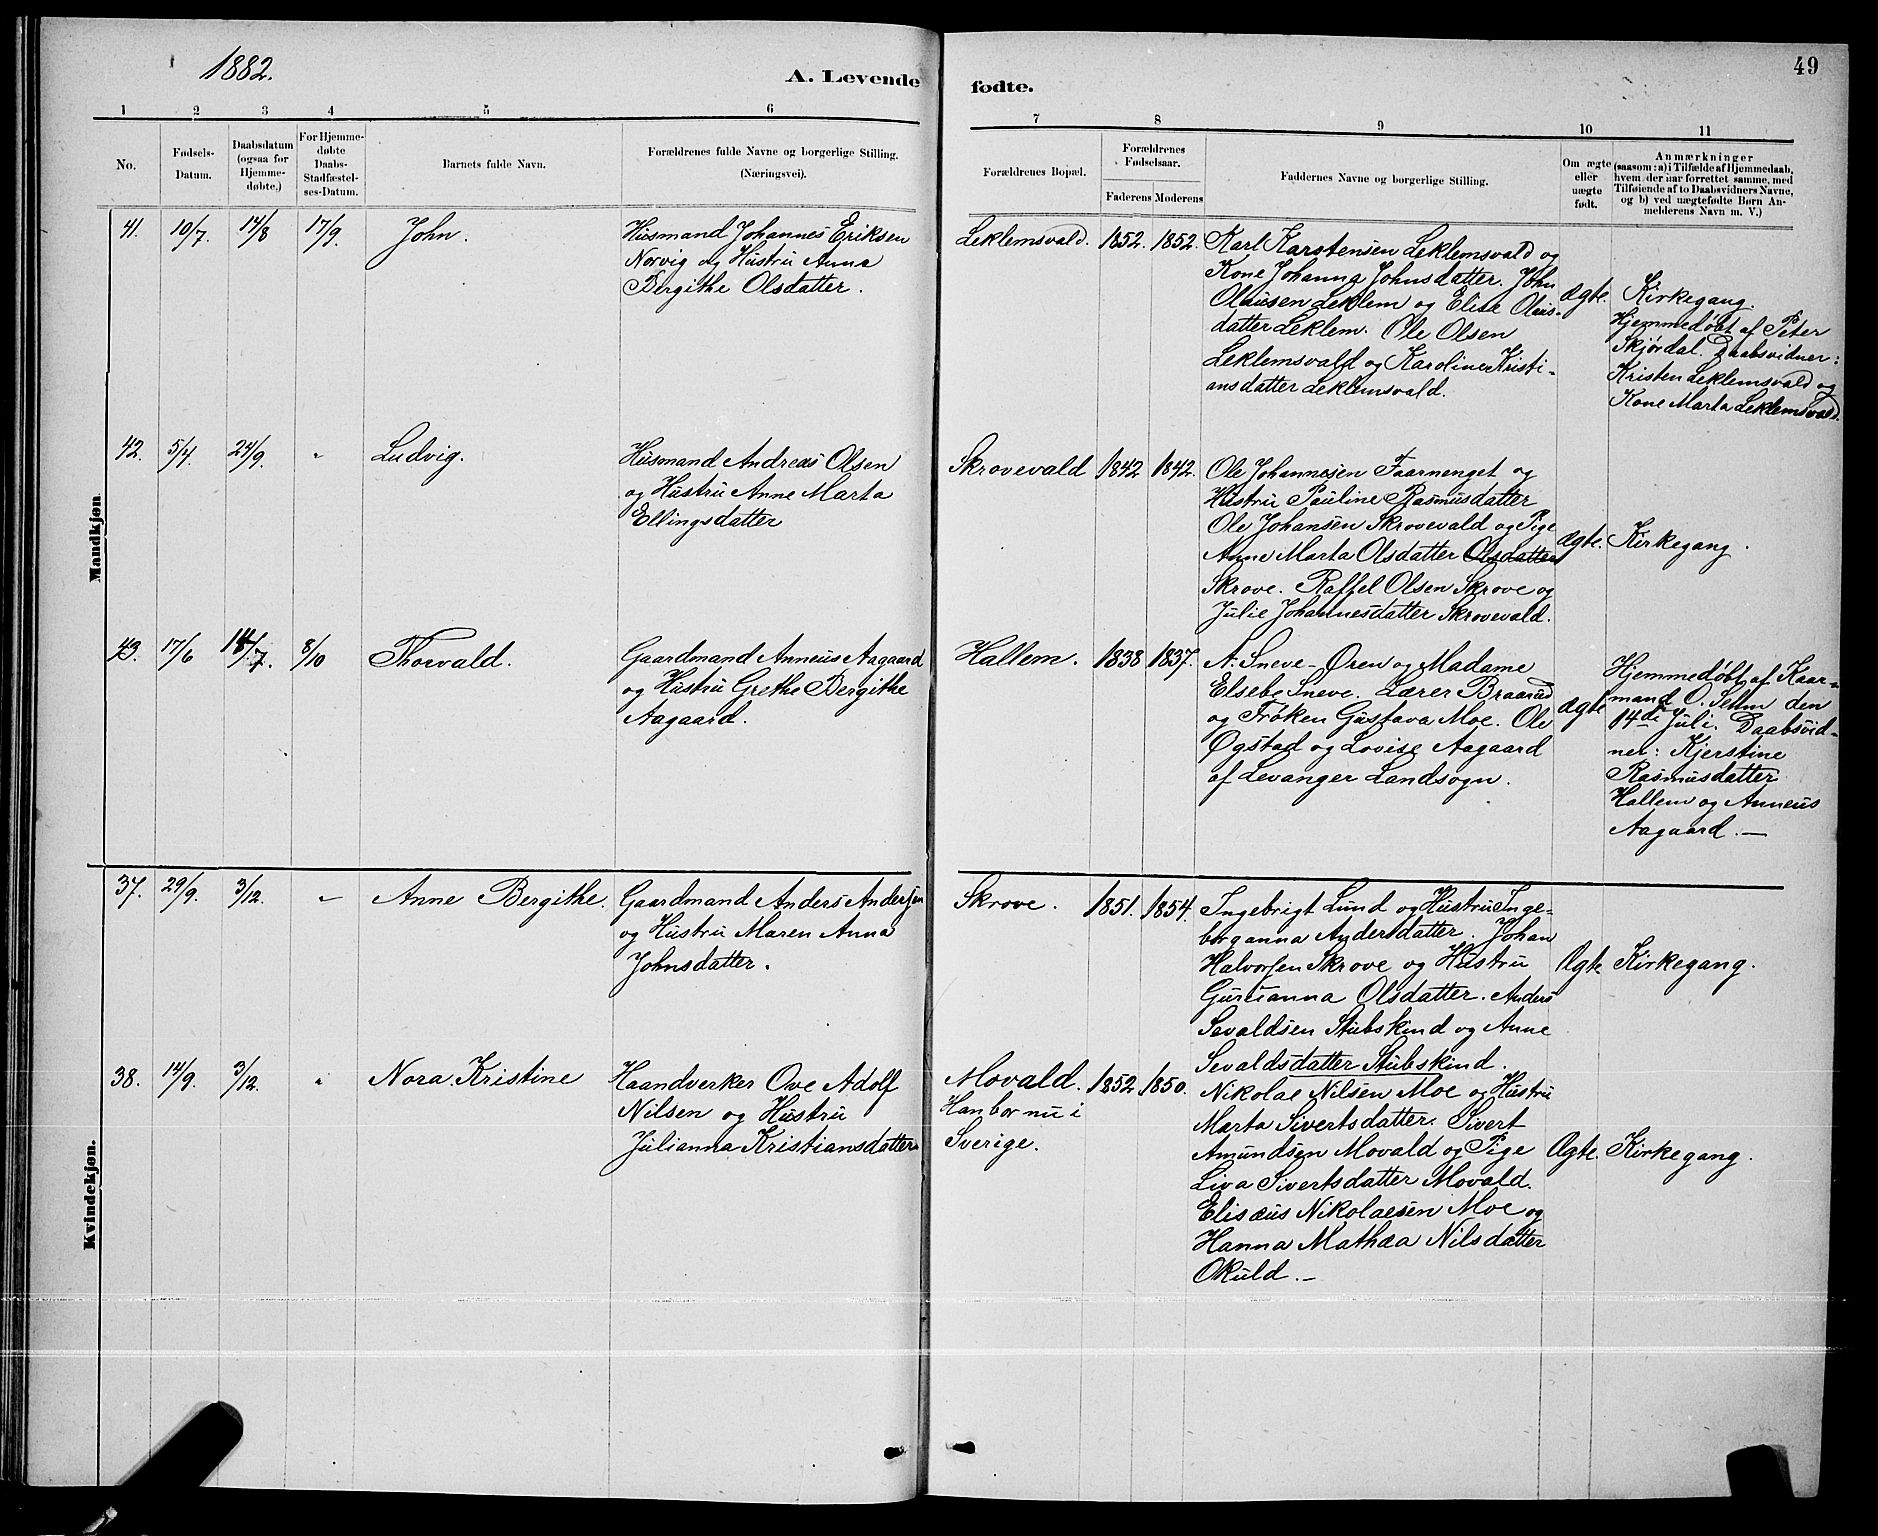 1882.
A. Levende
fødte.
49
1 2 3 4 5 6
7 8 9 10 11
No.
Fødsels-
Datum.
Daabsdatum
(ogsaa for
Hjemme-
døbte.)
For Hjemme-
døbte
Daabs-
Stadfæstel-
ses-Datum.
Barnets fulde Navn.
Forældrenes fulde Navne og borgerlige Stilling.
(Næringsvei).
Forældrenes Bopæl.
Forældrenes
Fødselsaar.
Faderens Moderens
Faddernes Navne og borgerlige Stilling.
Om ægte
eller
uægte
født.
Anmærkninger
(saasom: a) i Tilfælde af Hjemmedaab,
hvem der har forrettet samme, med
Tilføiende af to Daabsvidners Navne,
og b) ved uægtefødte Børn An-
melderens Navn m. V.)
Mandkjøn.
41. 10/7. 14/8 17/9. John.
Husmand Johannes Eriksen
Norvig og Hustru Anna
Bergithe Olsdatter.
Leklemsvald. 1852. 1852.
Karl Karstensen Leklemsvald og
Kone Johanna Johnsdatter. John
Olausen Leklem og Elise Olaus-
datter Leklem. Ole Olsen
Leklemsvald og Karoline Kristi-
ansdatter Leklemsvald.
ægte.
Kirkegang.
Hjemmedøbt af Peter
Skjørdal. Daabsvidner:
Kristen Leklemsvald og
Kone Marta Leklemsvald.
42. 5/4. 24/9. " Ludvig.
Husmand Andreas Olsen
og Hustru Anne Marta
Ellingsdatter
Skrovevald 1842 1842.
Ole Johannesen Faarnenget og
Hustru Pauline Rasmusdatter
Ole Johansen Skrovevald og Pige
Anne Marta Olsdatter Olsdatter
Skrove. Raffel Olsen Skrove og
Julie Johannesdatter Skrovevald.
ægte. Kirkegang.
43. 17/6 14/7. 8/10 Thorvald.
Gaardmand Anneus Aagaard
og Hustru Grethe Bergithe
Aagaard.
Hallem. 1838 1837.
A. Sneve-Øren og Madame
Elsebe Sneve. Lærer Braarud
og Frøken Gustava Moe. Ole
Øgstad og Lovise Aagaard
af Levanger Landsogn.
ægte
Hjemmedøbt af Kaar-
mand O. Sehm den
14de Juli. Daabsvid-
ner: Kjerstine
Rasmusdatter
Hallem og Anneus
Aagaard. —
Kvindekjøn.
37. 29/9. 3/12. " Anne Bergithe.
Gaardmand Anders Andersen
og Hustru Maren Anna
Johnsdatter.
Skrove. 1851. 1854.
Ingebrigt Lund og Hustru Inge-
borganna Andersdatter. Johan
Halvorsen Skrove og Hustru
Gurianna Olsdatter. Anders
Sevaldsen Stubskind og Anne
Sevaldsdatter Stubskind.
Ægte. Kirkegang.
38. 14/9. 3/12. " Nora Kristine
Haandverker Ove Adolf
Nilsen og Hustru
Julianna Kristiansdatter
Movald. 1852 1850.
Han bor nu i
Sverige.
Nikolae Nilsen Moe og Hustru
Marta Sivertsdatter. Sivert
Amundsen Movald og Pige
Liva Sivertsdatter Movald.
Elisæus Nikolaesen Moe og
Hanna Mathæa Nilsdatter
Okuld. —
Ægte. Kirkegang.